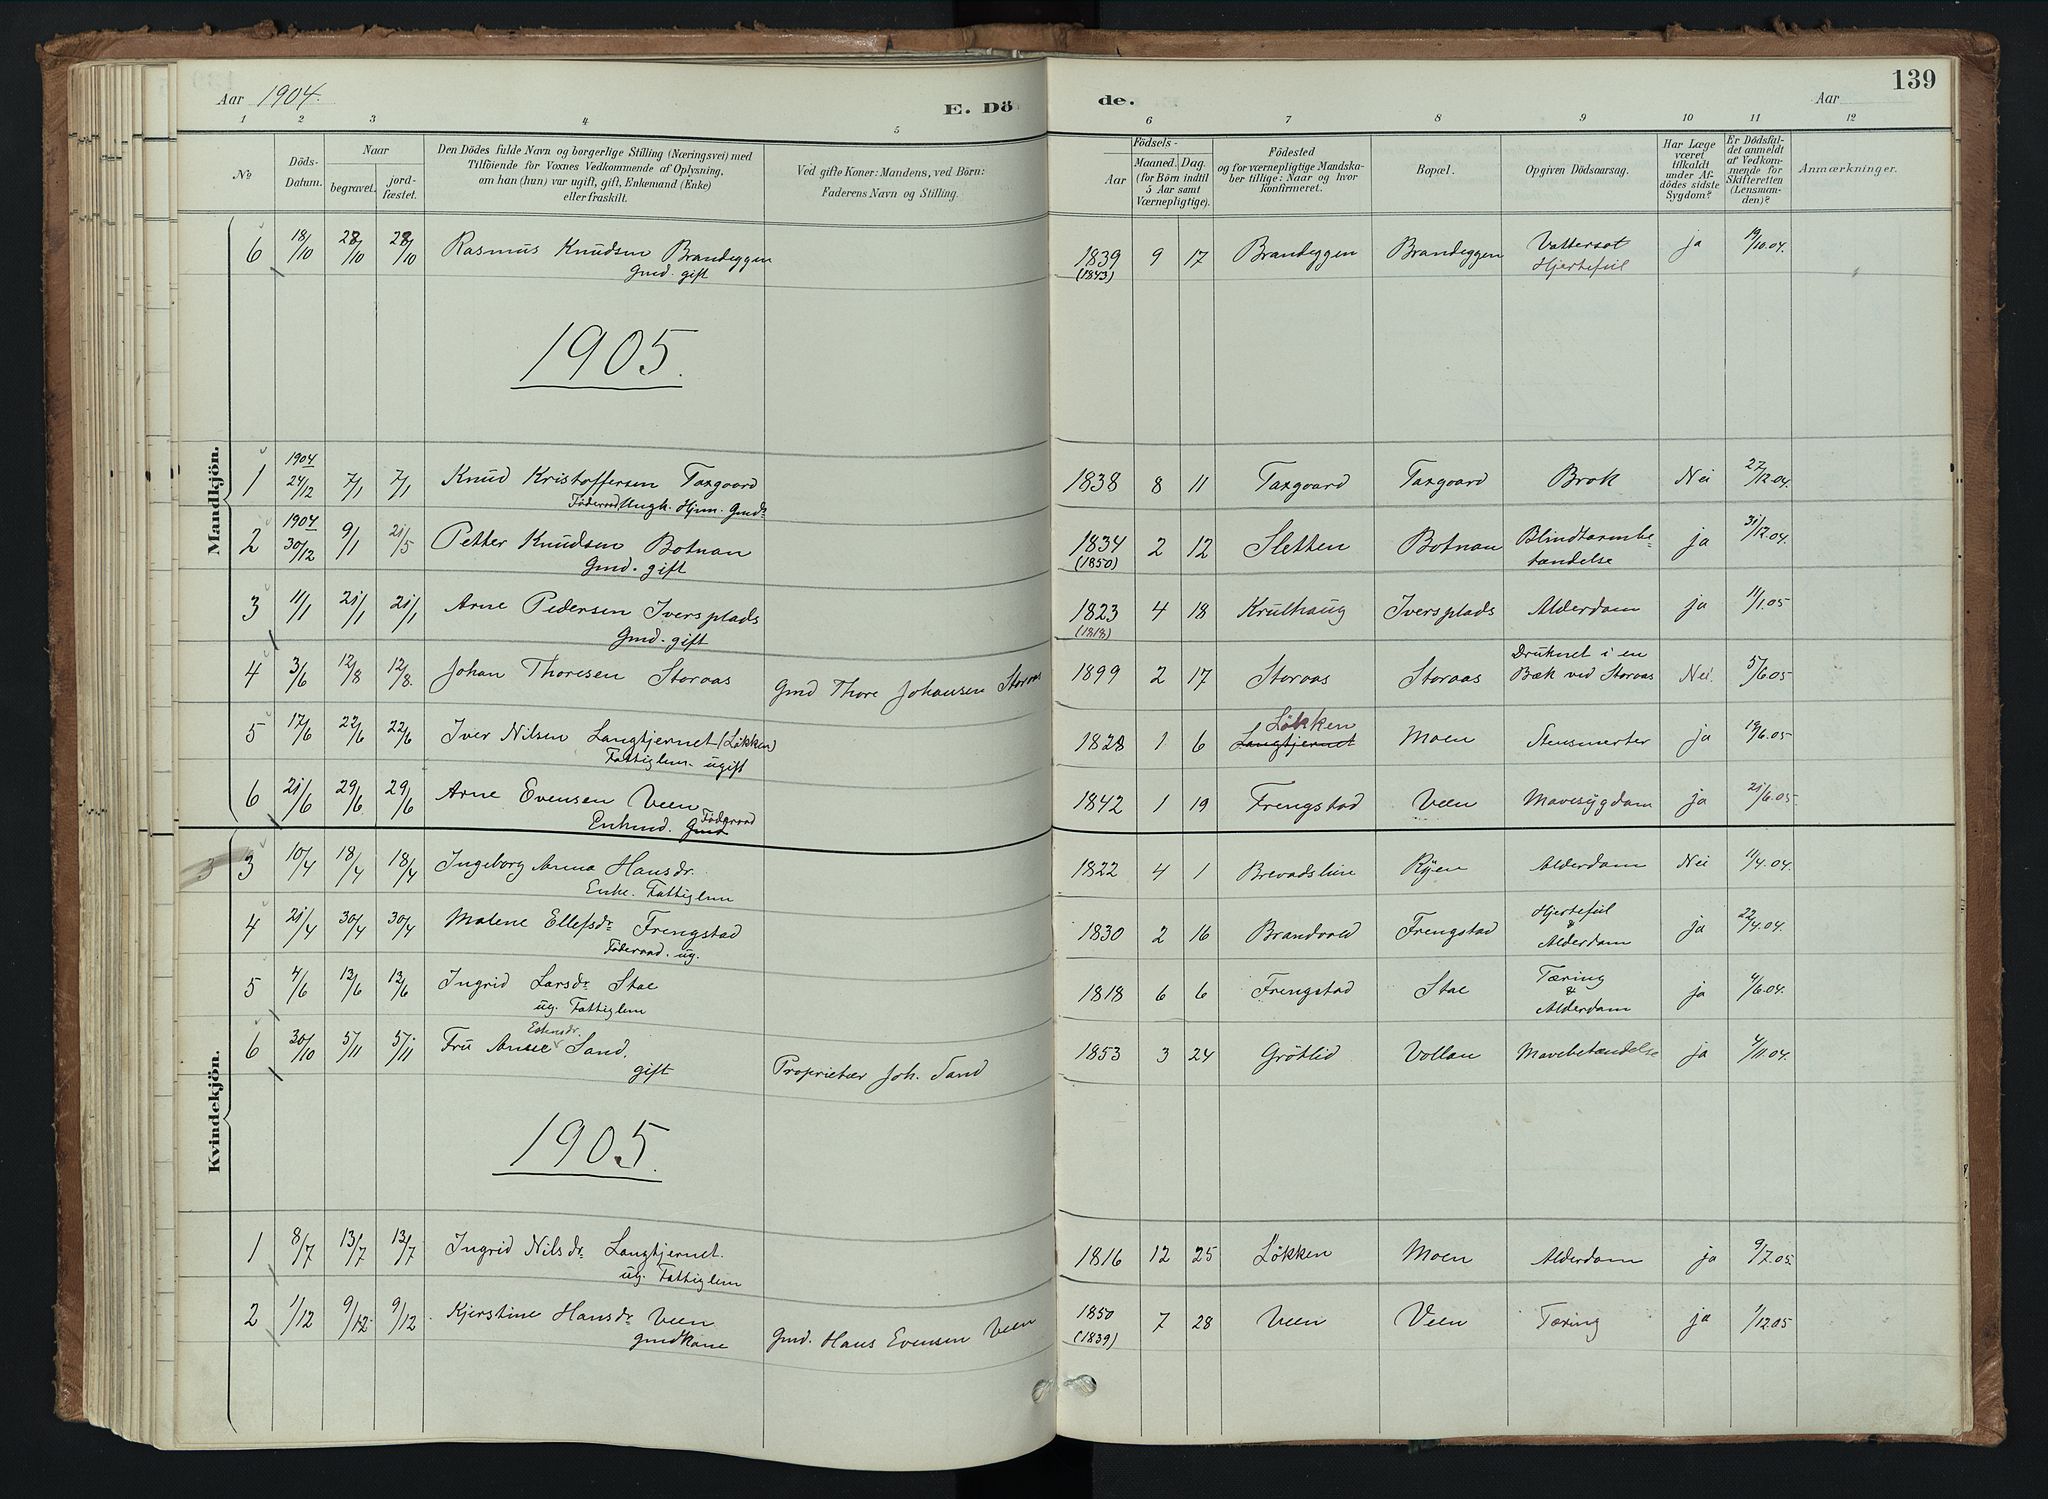 Aar 1904. E. Dö de. Aar 139
1 2 3 4 5 6 7 8 9 10 11 12
№ Döds-Datum. Naar begravet. jord-fæstet. Den Dödes fulde Navn og borgerlige Stilling (Næringsvei) med Tilföiende for Voxnes Vedkommende af Oplysning, om han (hun) var ugift, gift, Enkemand (Enke) eller fraskilt. Ved gifte Koner: Mandens, ved Börn: Faderens Navn og Stilling. Födsels- Aar Maaned. Dag. (for Börn indtil 5 Aar samt Værnepligtige). Födested og for værnepligtige Mandskaber tillige: Naar og hvor konfirmeret. Bopæl. Opgiven Dödsaarsag. Har Læge været tilkaldt under Afdödes sidste Sygdom? Er Dödsfaldet anmeldt af Vedkommende for Skifteretten (Lensmanden)? Anmærkninger.
Mandkjön.
6 18/10 28/10 28/10 Rasmus Knudsen Brandeggen 1839 9 17 Brandeggen Brandeggen Vattersot ja 19/10.04.
Gmd. gift (1843) Hjertefeil
1905.
1 1904 24/12 7/1 7/1 Knud Kristoffersen Taxgaard 1838 8 11 Taxgaard Taxgaard Brok Nei 27/12.04.
Föderaad
2 1904 30/12 9/1 21/5 Petter Knudsen Botnan 1834 2 12 Sletten Botnan Blindtarmbe- ja 31/12.04.
Gmd. gift (1850) tændelse
3 11/1 21/1 21/1 Arne Pedersen Iversplads 1823 4 18 Krulhaug Iversplads Alderdom ja 11/1.05
Gmd. gift (1818)
4 3/6 12/8 12/8. Johan Thoresen Storaas Gmd Thore Johansen Storaas 1899 2 17 Storaas Storaas Druknet i en Bæk ved Storaas Nei. 5/6.05
5 17/6 22/6 22/6 Iver Nilsen Langtjernet (Løkken) 1828 1 6 Løkken Langtjernet Moen Stensmerter ja 19/6.05
Fattiglem. ugift
6 21/6 29/6 29/6 Arne Evensen Veen 1842 1 19 Frengstad Veen Mavesygdam ja 21/6.05.
Enkmd. Föderaad Gmd
Kvindekjön.
3 3 10/4 18/4 18/4 Ingeborg Anna Hansdr. 1822 4 1 Ryen Alderdam Nei 11/4.04.
Enke. Fattiglem
4 21/4 30/4 30/4 Malene Ellefsdr Frengstad 1830 2 16 Brandvold Frengstad Hjertefeil & Alderdam ja 22/4.04.
Föderaad. ug.
5 4/6 13/6 13/6 Ingrid Larsdr Stae 1818 6 6 Frengstad Stae Tæring & Alderdam ja 4/6.04.
ug. Fattiglem
6 30/10 5/11 5/11 Fru Anne Sand. Proprietær Joh. Sand 1853 3 24 Grötlid Vollan Mavebetændelse ja 4/11.04.
gift
1905.
1 8/7 13/7 13/7 Ingrid Nilsdr Langtjernet. 1816 12 25 Løkken Moen Alderdam ja 9/7.05.
ug. Fattiglem
2 1/12 9/12 9/12 Kjerstine Hansdr Veen Gmd. Hans Evensen Veen 1850 7 28 Veen Veen Tæring ja 1/12.05
gmdkone (1839)